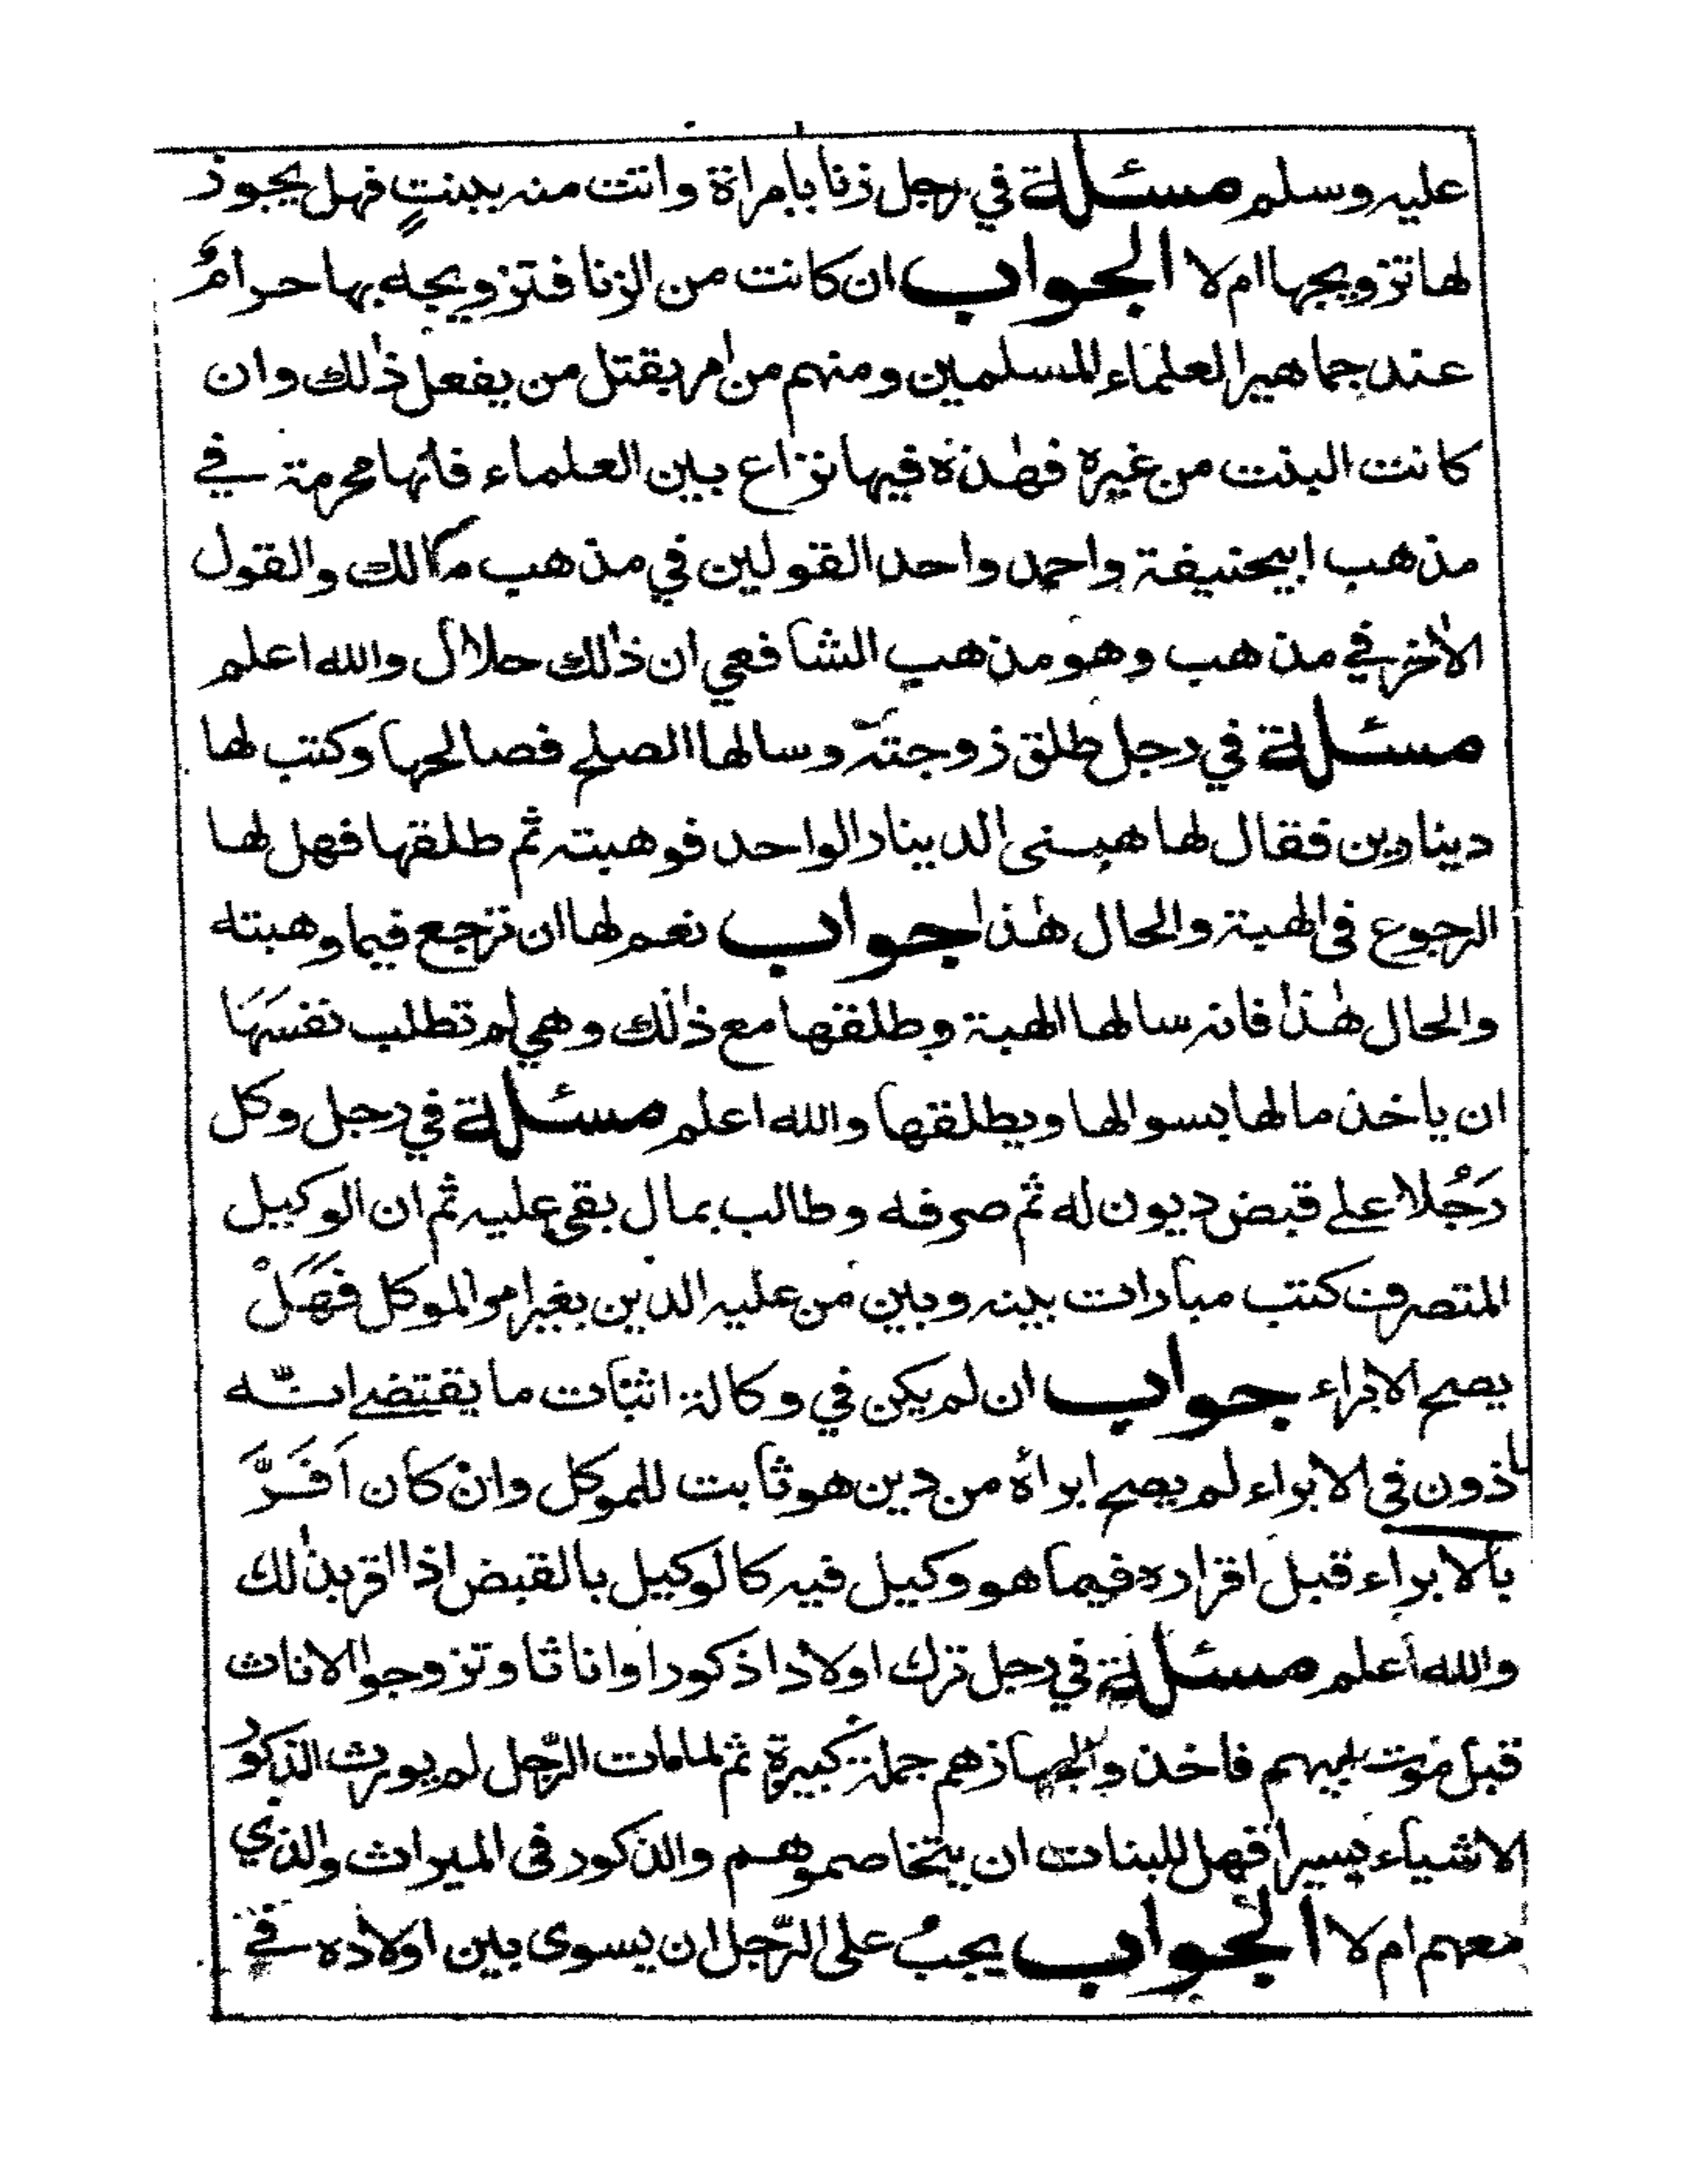 عليه وسلم مسئلة في رجل زنا بامراة واتت منه ببنتٍ فهل يجوز
لها تزويجها ام لا الجواب ان كانت من الزنا فتزويجه بها حرامٌ
عند جماهير العلماء المسلمين ومنهم من امر بقتل من يفعل ذٰلك وان
كانت البنت من غيره فهٰذه فيها نزاع بين العلماء فانها محرمة في
مذهب ابيحنيفة واحمد واحد القولين في مذهب مالك والقول
الاٰخر في مذهب وهو مذهب الشافعي ان ذٰلك حلال والله اعلم
مسئلة في رجل طلق زوجته وسالها الصلح فصالحها وكتب لها
دينارين فقال لها هبنى الدينار الواحد فوهبته ثم طلقها فهل لها
الرجوع فى الهبة والحال هٰذا جواب نعم لها ان ترجع فيما وهبته
والحال هٰذا فانه سالها الهبة وطلقها مع ذٰلك وهي لم تطلب نفسَهَا
ان ياخذ مالها بسوالها ويطلقها والله اعلم مسئلة في رجل وكل
رَجُلا على قبض ديون له ثم صرفه وطالب بمال بقى عليه ثم ان الوكيل
المتصرف كتب مبارات بينه وبين من عليه الدين بغير امر الموكل فَهَلْ
يصح الابراء جواب ان لم يكن في وكالة اثبات ما يقتضے انّه
ماذون فى الابراء لم يصح ابراؤه من دين هو ثابت للموكل وان كان اَقَرَّ
بالابراء قبل اقراره فيما هو وكيل فيه كالوكيل بالقبض اذا اقر بذٰلك
والله اعلم مسئلة في رجل ترك اولادا ذكورا واناثا وتزوجوا الاناث
قبل موت ابيهم فاخذ والجهازهم جملة كبيرة ثم لما مات الرّجل لم يورث الذكورُ
الاشياء يسيرا فهل للبنات ان يتخاصموهم والذكور فى الميراث والذي
معهم ام لا الجواب يجبُ على الرّجل ان يسوى بين اولاده في